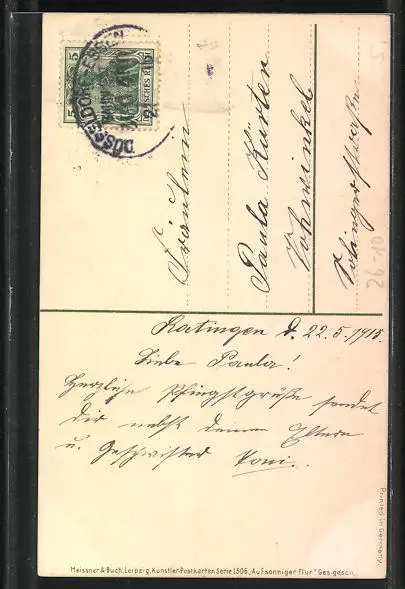 5 5
DÜSSELDORF
Fräulein
Paula Kürten
Vohwinkel
Solingerstraße
26-10
Ratingen d. 22.5.1915
Liebe Paula!
Herzliche Pfingstgrüße sendet
dir nebst deinen Eltern
u. Geschwister Toni.
Printed in Germany.
Meissner & Buch, Leipzig, Künstler-Postkarten Serie 1506 „Auf sonniger Flur" Ges. gesch.